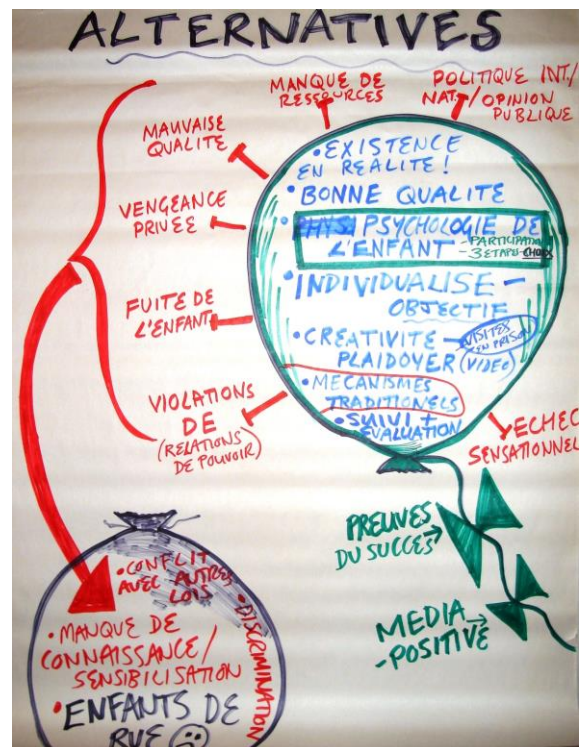 ALTERNATIVES
MANQUE DE
RESSOURCES
POLITIQUE INT./
NAT./OPINION
PUBLIQUE
MAUVAISE
QUALITE
VENGEANCE
PRIVEE
FUITE DE
L'ENFANT
VIOLATIONS
DE
(RELATIONS
DE POUVOIR)
• EXISTENCE
EN REALITE!
• BONNE QUALITE
• PSYCHOLOGIE DE
L'ENFANT
- PARTICIPATION
- 3 ETAPES CHOIX
• INDIVIDUALISE -
OBJECTIF
• CREATIVITE -
VISITES
EN PRISON
PLAIDOYER (VIDEO)
• MECANISMES
TRADITIONELS
• SUIVI +
EVALUATION
ECHEC
SENSATIONNEL
PREUVES
DU SUCCES
MEDIA
-POSITIVE
• CONFLIT
AVEC AUTRES
LOIS
• DISCRIMINATION
• MANQUE DE
CONNAISSANCE/
SENSIBILISATION
• ENFANTS DE
RUE